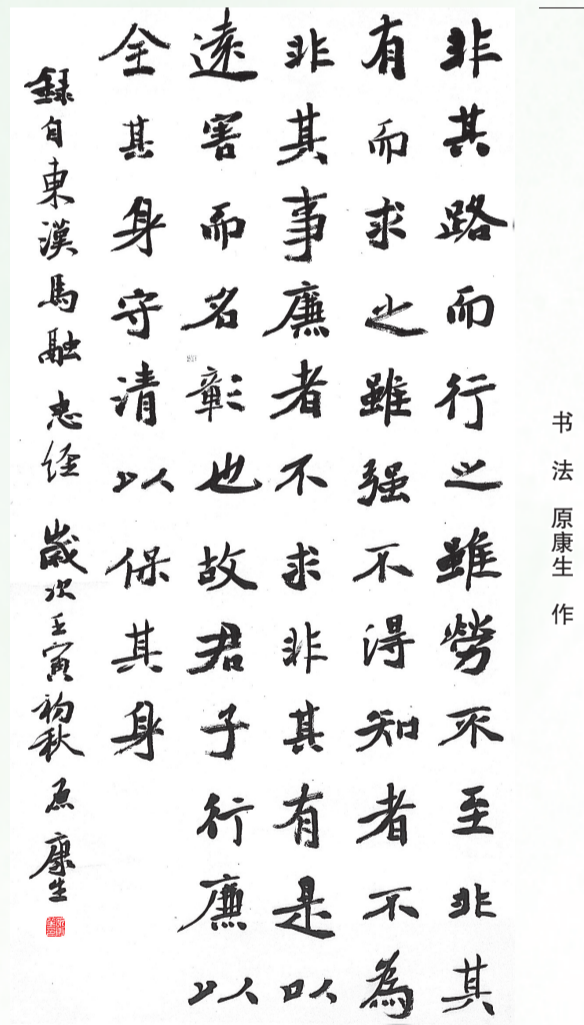 非其路而行之雖勞不至非其
有而求之雖强不得知者不為
非其事廉者不求非其有是以
遠害而名彰也故君子行廉以
全其身守清以保其身
録自東漢馬融忠经 歲次壬寅初秋 原康生
书 法 原康生 作